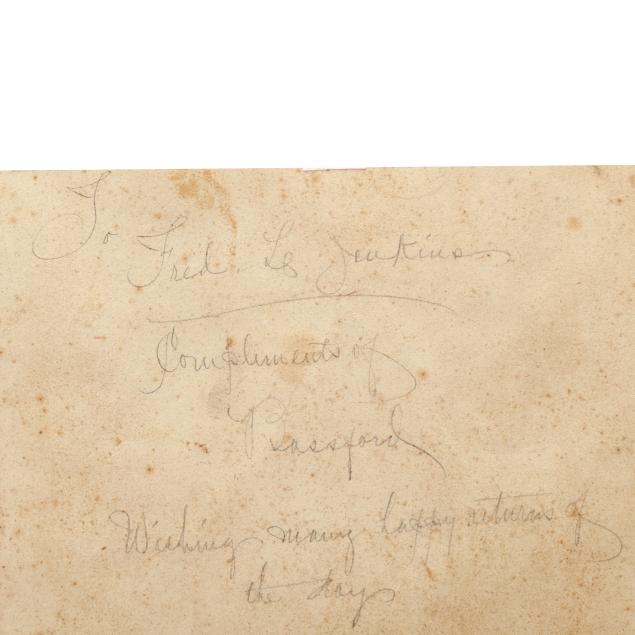 To
Fred. Le Jenkins
Compliments of
Wishing many happy returns of
the days